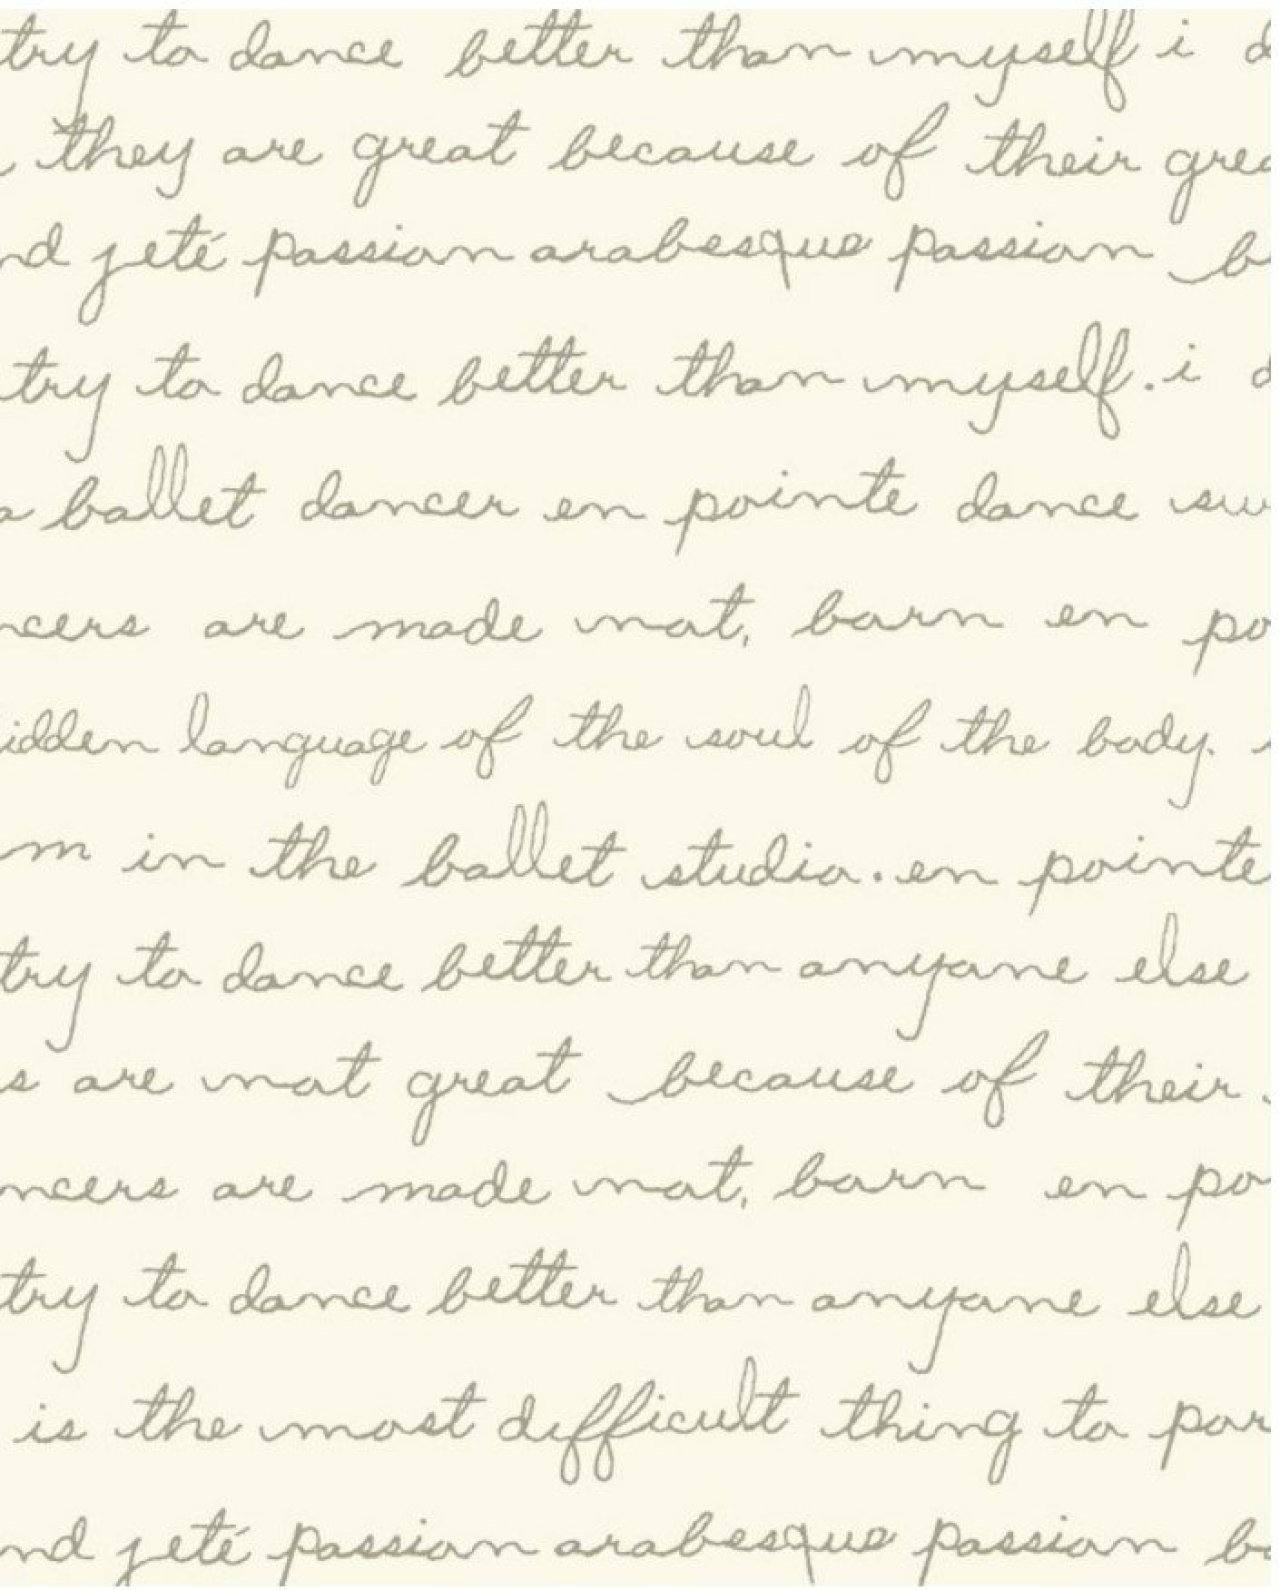 try to dance better than myself i d
they are great because of their grea
nd jeté passion arabesque passion b
try to dance better than myself. i d
a ballet dancer en pointe dance sw
ncers are made not, born en po
idden language of the soul of the body.
m in the ballet studio. en pointe
try to dance better than anyone else
s are not great because of their
ncers are made not, born en po
try to dance better than anyone else
is the most difficult thing to por
nd jeté passion arabesque passion bo